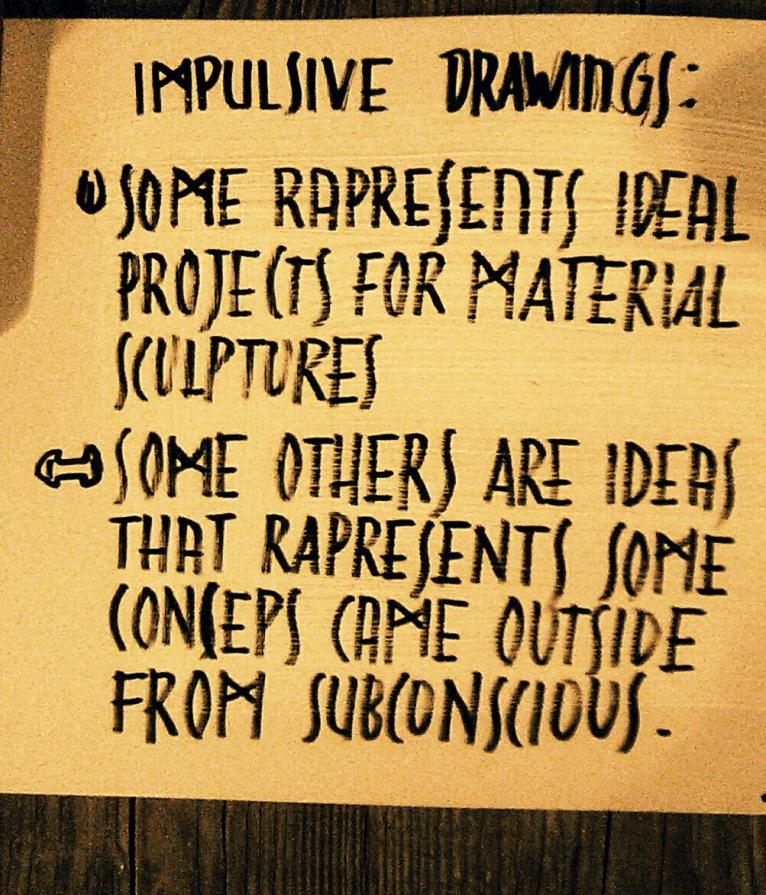 IMPULSIVE DRAWINGS:
SOME RAPRESENTS IDEAL
PROJECTS FOR MATERIAL
SCULPTURES
SOME OTHERS ARE IDEAS
THAT RAPRESENTS SOME
CONCEPS CAME OUTSIDE
FROM SUBCONSCIOUS.